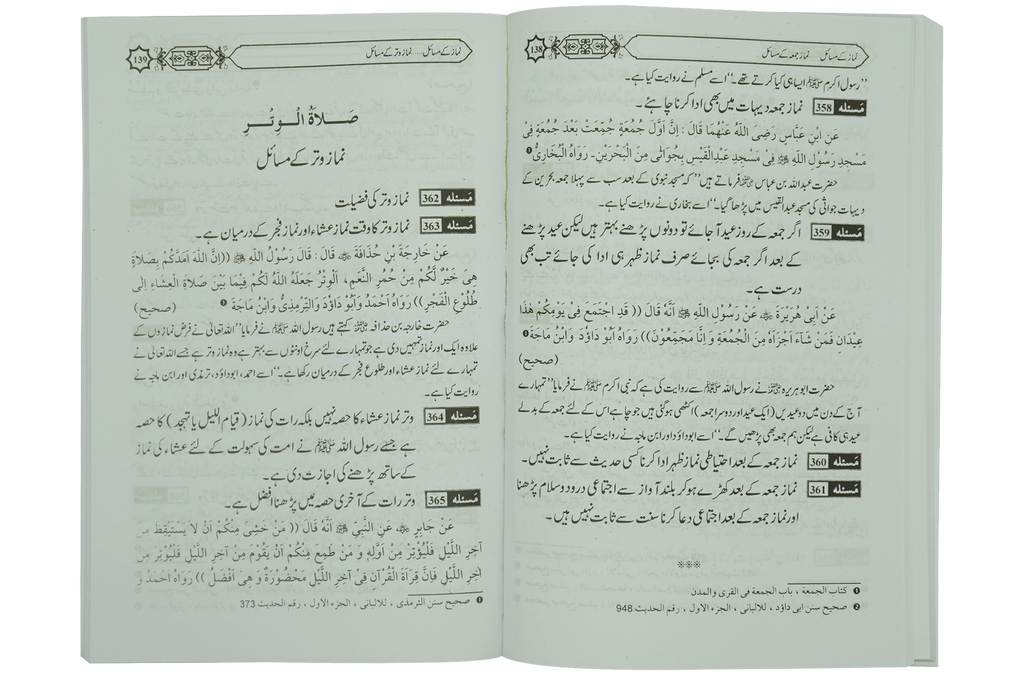 138
نماز کے مسائل..... نماز جمعہ کے مسائل
”رسول اکرم ﷺ ایسا ہی کیا کرتے تھے۔“ اسے مسلم نے روایت کیا ہے۔
مسئلہ 358 نماز جمعہ دیہات میں بھی ادا کرنا چاہئے۔
عَنِ ابْنِ عَبَّاسٍ رَضِیَ اللّٰهُ عَنْهُمَا قَالَ : إِنَّ أَوَّلَ جُمُعَةٍ جُمِّعَتْ بَعْدَ جُمُعَةٍ فِیْ
مَسْجِدِ رَسُوْلِ اللّٰهِ ﷺ فِیْ مَسْجِدِ عَبْدِالْقَیْسِ بِجُوَاثٰی مِنَ الْبَحْرَیْنِ۔ رَوَاهُ الْبُخَارِیُّ ❶
حضرت عبداللہ بن عباس فرماتے ہیں ”کہ مسجد نبوی کے بعد سب سے پہلا جمعہ بحرین کے
دیہات جواثی کی مسجد عبدالقیس میں پڑھا گیا۔“ اسے بخاری نے روایت کیا ہے۔
مسئلہ 359 اگر جمعہ کے روز عید آ جائے تو دونوں پڑھنے بہتر ہیں لیکن عید پڑھنے
کے بعد اگر جمعہ کی بجائے صرف نماز ظہر ہی ادا کی جائے تب بھی
درست ہے۔
عَنْ أَبِیْ هُرَیْرَةَ عَنْ رَسُوْلِ اللّٰهِ ﷺ أَنَّهُ قَالَ (( قَدِ اجْتَمَعَ فِیْ یَوْمِکُمْ هٰذَا
عِیْدَانِ فَمَنْ شَآءَ أَجْزَأَهُ مِنَ الْجُمُعَةِ وَ إِنَّا مُجَمِّعُوْنَ)) رَوَاهُ أَبُوْ دَاوُدَ وَابْنُ مَاجَةَ ❷
(صحیح)
حضرت ابو ہریرہ نے رسول اللہ ﷺ سے روایت کی ہے کہ نبی اکرم ﷺ نے فرمایا ”تمہارے
آج کے دن میں دو عیدیں (ایک عید اور دوسرا جمعہ) اکٹھی ہو گئی ہیں جو چاہے اس کے لئے جمعہ کے بدلے
عید ہی کافی ہے لیکن ہم جمعہ بھی پڑھیں گے۔“ اسے ابو داؤد اور ابن ماجہ نے روایت کیا ہے۔
مسئلہ 360 نماز جمعہ کے بعد احتیاطی نماز ظہر ادا کرنا کسی حدیث سے ثابت نہیں۔
مسئلہ 361 نماز جمعہ کے بعد کھڑے ہو کر بلند آواز سے اجتماعی درود و سلام پڑھنا
اور نماز جمعہ کے بعد اجتماعی دعا کرنا سنت سے ثابت نہیں ہیں۔
❶ کتاب الجمعة ، باب الجمعة فی القری والمدن
❷ صحیح سنن ابی داؤد ، للالبانی ، الجزء الاول ، رقم الحدیث 948
139
نماز کے مسائل..... نماز وتر کے مسائل
صَلَاةُ الْوِتْرِ
نماز وتر کے مسائل
مسئلہ 362 نماز وتر کی فضیلت
مسئلہ 363 نماز وتر کا وقت نماز عشاء اور نماز فجر کے درمیان ہے۔
عَنْ خَارِجَةَ بْنِ حُذَافَةَ قَالَ : قَالَ رَسُوْلُ اللّٰهِ ﷺ ((إِنَّ اللّٰهَ أَمَدَّکُمْ بِصَلَاةٍ
هِیَ خَیْرٌ لَّکُمْ مِنْ حُمْرِ النَّعَمِ، اَلْوِتْرُ جَعَلَهُ اللّٰهُ لَکُمْ فِیْمَا بَیْنَ صَلَاةِ الْعِشَاءِ إِلٰی
طُلُوْعِ الْفَجْرِ)) رَوَاهُ أَحْمَدُ وَأَبُوْ دَاوُدَ وَالتِّرْمِذِیُّ وَابْنُ مَاجَةَ ❶ (صحیح)
حضرت خارجہ بن حذافہ کہتے ہیں رسول اللہ ﷺ نے فرمایا ”اللہ تعالیٰ نے فرض نمازوں کے
علاوہ ایک اور نماز تمہیں دی ہے جو تمہارے لئے سرخ اونٹوں سے بہتر ہے وہ نماز وتر ہے جسے اللہ تعالیٰ نے
تمہارے لئے نماز عشاء اور طلوع فجر کے درمیان رکھا ہے۔“ اسے احمد، ابوداؤد، ترمذی اور ابن ماجہ نے
روایت کیا ہے۔
مسئلہ 364 وتر نماز عشاء کا حصہ نہیں بلکہ رات کی نماز (قیام اللیل یا تہجد) کا حصہ
ہے جسے رسول اللہ ﷺ نے امت کی سہولت کے لئے عشاء کی نماز
کے ساتھ پڑھنے کی اجازت دی ہے۔
مسئلہ 365 وتر رات کے آخری حصہ میں پڑھنا افضل ہے۔
عَنْ جَابِرٍ عَنِ النَّبِیِّ ﷺ أَنَّهُ قَالَ (( مَنْ خَشِیَ مِنْکُمْ أَنْ لَا یَسْتَیْقِظَ مِنْ
آخِرِ اللَّیْلِ فَلْیُوْتِرْ مِنْ أَوَّلِهِ وَ مَنْ طَمِعَ مِنْکُمْ أَنْ یَقُوْمَ مِنْ آخِرِ اللَّیْلِ فَلْیُوْتِرْ مِنْ
آخِرِ اللَّیْلِ فَإِنَّ قِرَاءَةَ الْقُرْآنِ فِیْ آخِرِ اللَّیْلِ مَحْضُوْرَةٌ وَ هِیَ أَفْضَلُ )) رَوَاهُ أَحْمَدُ وَ
❶ صحیح سنن الترمذی ، للالبانی ، الجزء الاول ، رقم الحدیث 373